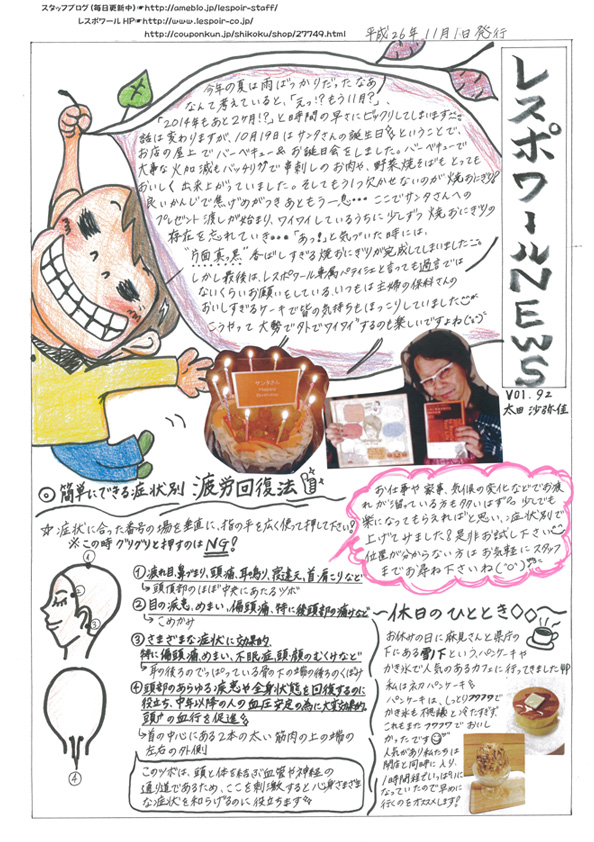 スタッフブログ(毎日更新中)☞http://ameblo.jp/lespoir-staff/
レスポワール HP☞http://www.lespoir-co.jp/
http://couponkun.jp/shikoku/shop/27749.html
平成26年11月1日発行
レスポワールNEWS
VOl.92
太田 沙弥佳
今年の夏は雨ばっかりだったなあ
なんて考えていると、「えっ!?もう11月?」、
「2014年もあと2ヶ月!?」と時間の早さにビックリしてしまいます
話は変わりますが、10月19日はサンタさんの誕生日♪ということで、
お店の屋上でバーベキュー&お誕日会をしました。バーベキューで
大事な火加減もバッチリで串刺しのお肉や、野菜焼そばもとっても
おいしく出来上がっていました。そしてもう1つ欠かせないのが焼おにぎり!
良いかんじで焦げめがつきあともう一息・・・ここでサンタさんへの
プレゼント渡しが始まり、ワイワイしているうちに少しずつ焼おにぎりの
存在を忘れていき・・・「あっ!」と気づいた時には、
"片面真っ黒"香ばしすぎる焼おにぎりが完成してしまいました
しかし最後は、レスポワール専属パティシエと言っても過言では
ないくらいお願いをしている、いつもは主婦の保科さんの
おいしすぎるケーキで皆の気持ちもほっこりしていました
こうやって大勢で外でワイワイするのも楽しいですよね
サンタさん
Happy
Birthday
◎簡単にできる症状別 疲労回復法
☆症状に合った番号の場を垂直に、指の平を広く使って押して下さい!
※この時グリグリと押すのはNG!
お仕事や家事、気候の変化などでお疲
れが溜っている方も多いはず?少しでも
楽になってもらえればと思い、症状別で
上げてみました!是非お試し下さい
位置が分からない方はお気軽にスタッフ
までお尋ね下さいね(^o^)
①
②
③
④
①疲れ目、鼻づまり、頭痛、耳鳴り、寝違え、首・肩こりなど
↳頭頂部のほぼ中央にあたるツボ
②目の疾患、めまい、偏頭痛、特に後頭部の痛みなど
↳こめかみ
③さまざまな症状に効果的
特に偏頭痛、めまい、不眠症、頭・顔のむくみなど
↳耳の後ろのでっぱっている骨の下の端の後ろのくぼみ
④頭部のあらゆる疾患や全身状態を回復するのに
役立ち、中年以降の人の血圧安定の為に大変効果的。
頭皮の血行を促進
↳首の中心にある2本の太い筋肉の上の端の
左右の外側
このツボは、頭と体を結ぶ血管や神経の
通り道であるため、ここを刺激すると心身さまざま
な症状を和らげるのに役立ちます
〜休日のひととき◇◇〜
お休みの日に麻見さんと県庁の
下にある雪ノ下というパンケーキや
かき氷で人気のあるカフェに行ってきました
私は初のパンケーキ
パンケーキは、しっとりフワフワで
かき氷も不思議と冷たすぎず、
これもまたフワフワでおいし
かったです
人気があり私たちは
開店と同時に入り、
1時間程でいっぱいに
なっていたので早めに
行くのをオススメします!